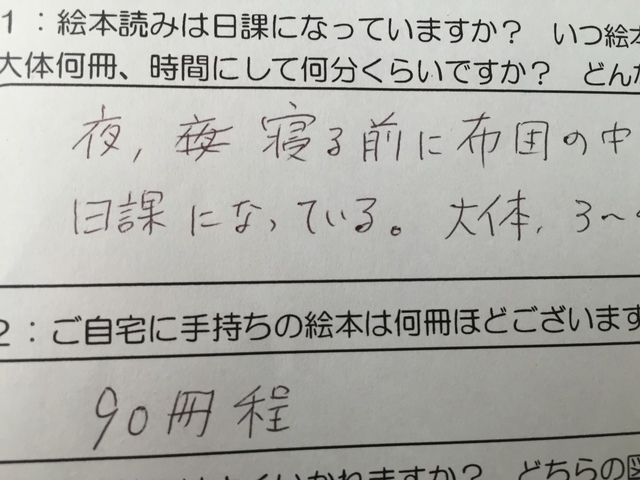 1：絵本読みは日課になっていますか？ いつ絵本
大体何冊、時間にして何分くらいですか？ どんな
夜, 寝る前に布団の中
日課になっている。大体、3〜
2：ご自宅に手持ちの絵本は何冊ほどございます
90冊程
いかれますか？ どちらの図